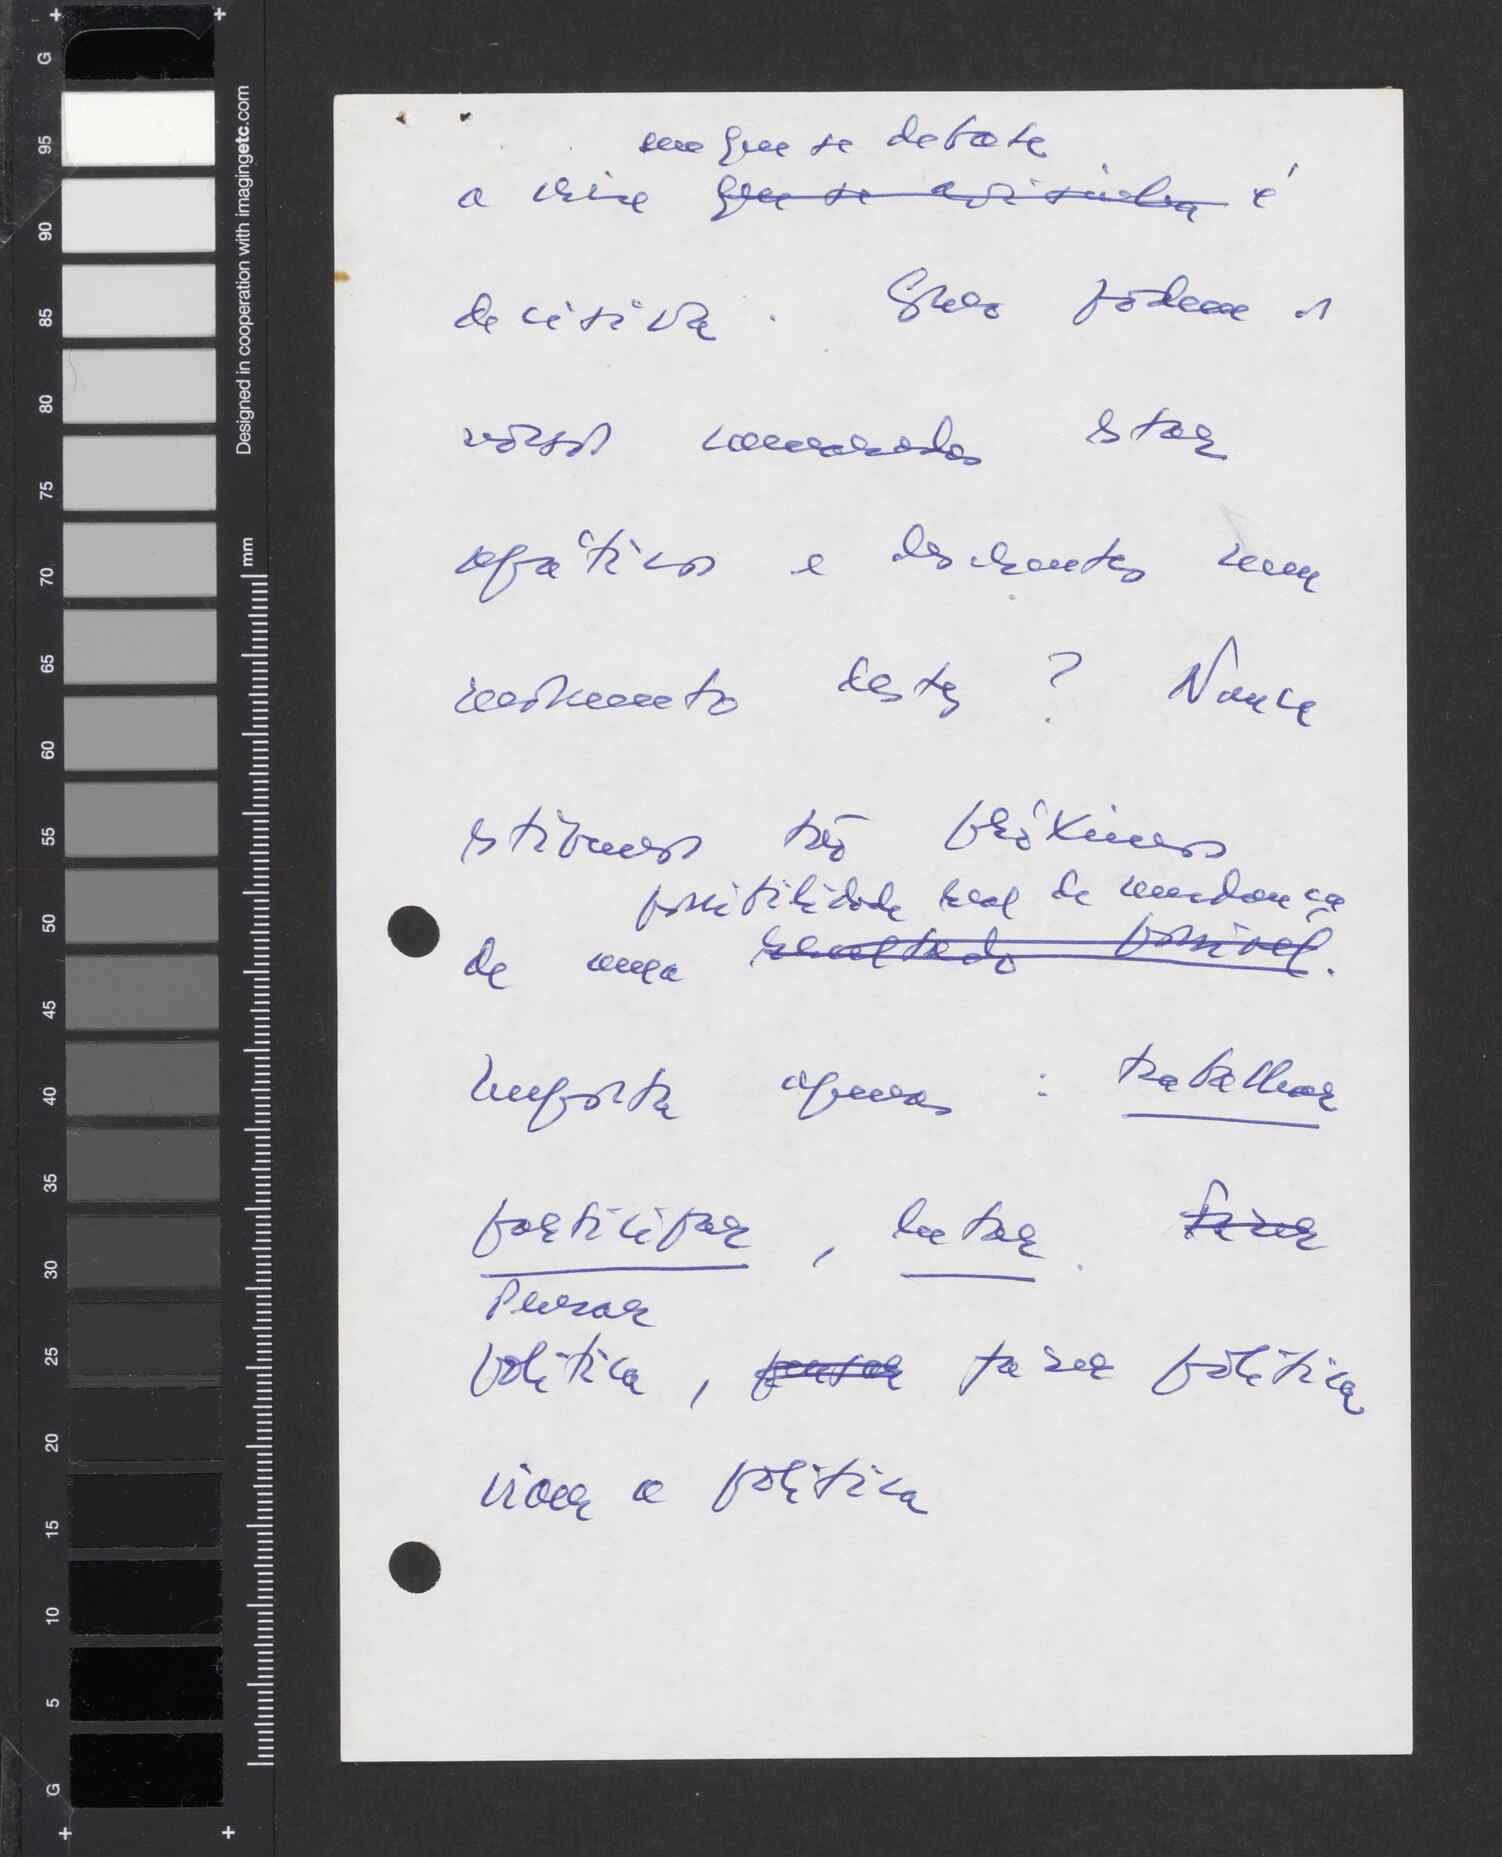 em que se debate
a crise que se avizinha é
decisiva. Como podem os
nossos camaradas estar
apáticos e descrentes num
momento deste? Nunca
estivemos tão próximos
possibilidade real de mudança
de uma resultado possível.
Importa apenas: trabalhar
participar, lutar. Fazer
Pensar
política, pensar fazer política
viver a política
G
95
90
85
80
75
70
65
60
55
50
45
40
35
30
25
20
15
10
5
G
Designed in cooperation with imagingetc.com
mm